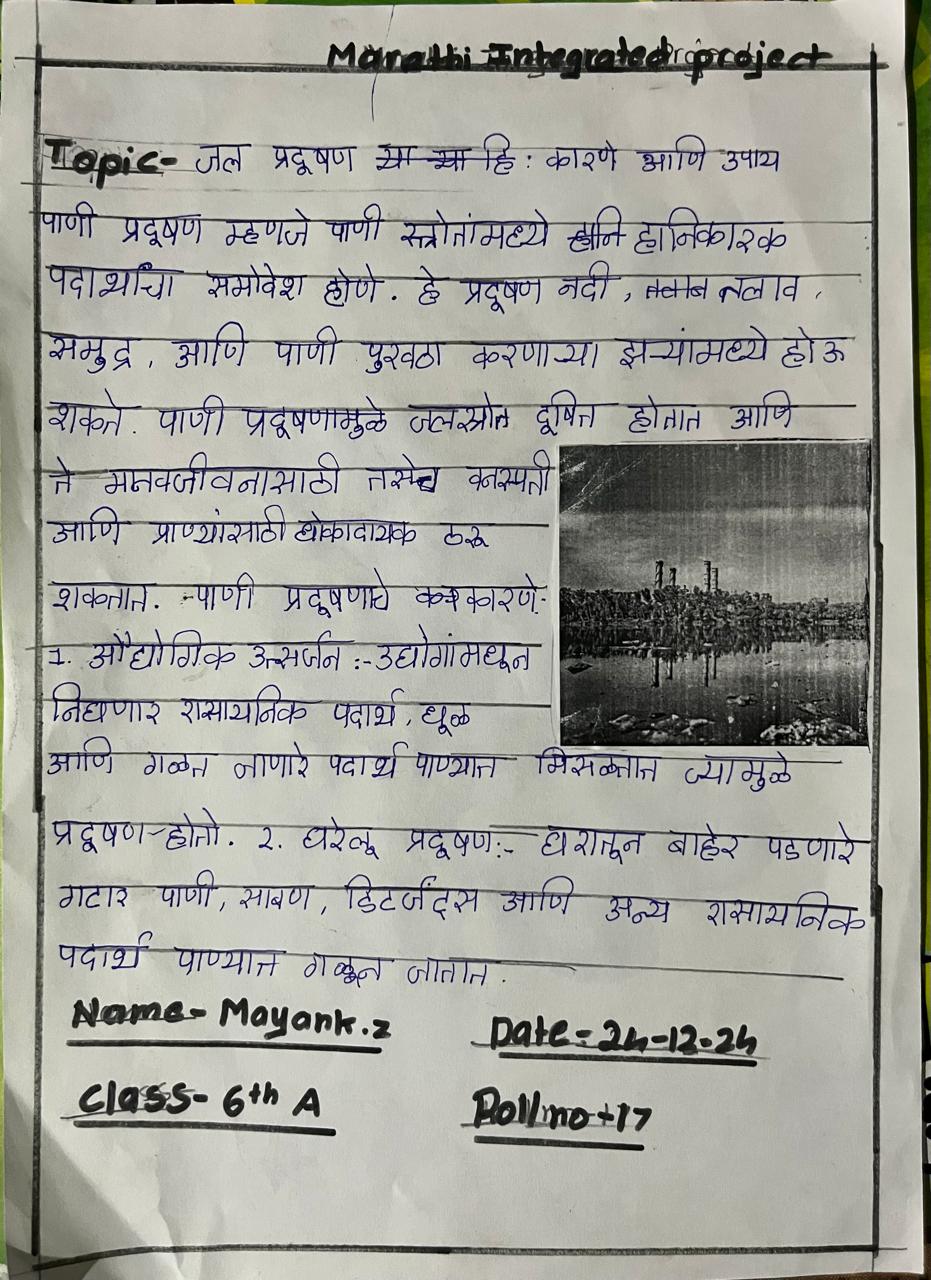 Marathi Integrated project
Topic- जल प्रदूषण या च्या हि : कारणे आणि उपाय
पाणी प्रदूषण म्हणजे पाणी स्त्रोतांमध्ये हानि हानिकारक
पदार्थांचा समावेश होणे. हे प्रदूषण नदी, तलाव,
समुद्र, आणि पाणी पुरवठा करणाऱ्या झऱ्यांमध्ये होऊ
शकते. पाणी प्रदूषणामुळे जलस्रोत दूषित होतात आणि
ते मानवजीवनासाठी तसेच वनस्पती
आणि प्राण्यांसाठी धोकादायक ठरू
शकतात. :-पाणी प्रदूषणाचे कारणे:-
1. औद्योगिक उत्सर्जन :- उद्योगांमधून
निघणार रासायनिक पदार्थ, धूळ
आणि गळत जाणारे पदार्थ पाण्यात मिसळतात ज्यामुळे
प्रदूषण-होतो. २. घरेलू प्रदूषण:- घरातून बाहेर पडणारे
गटार पाणी, साबण, डिटर्जंट्स आणि अन्य रासायनिक
पदार्थ पाण्यात गळून जातात.
Name- Mayank.z
Date- 24-12-24
Class- 6th A
Roll no-17